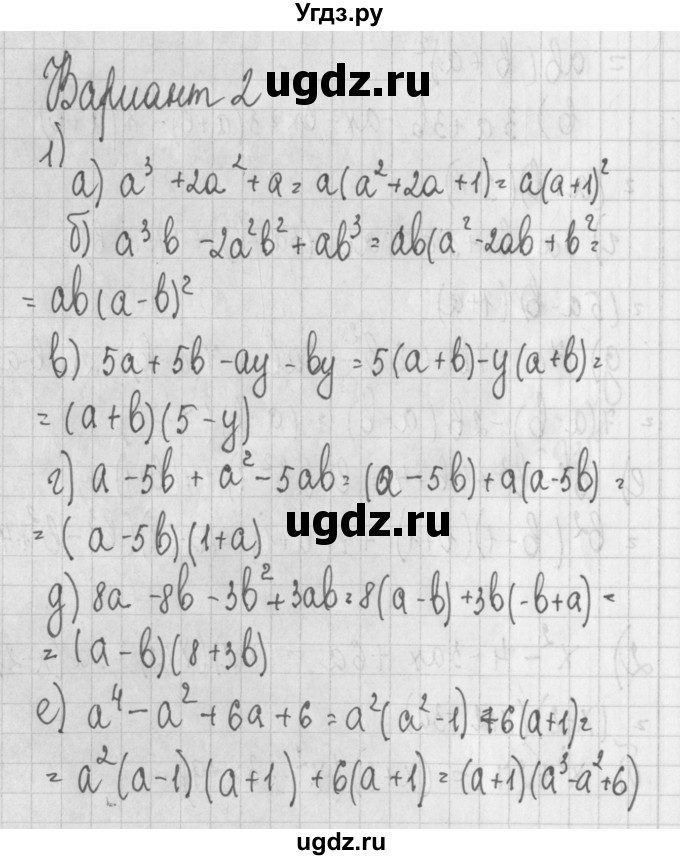 Угдз.ру
Вариант 2
ugdz.ru
1)
а) a³ + 2a² + a = a(a² + 2a + 1) = a(a+1)²
б) a³b - 2a²b² + ab³ = ab(a² - 2ab + b² =
= ab(a - b)²
в) 5a + 5b - ay - by = 5(a+b) - y(a+b) =
= (a+b)(5-y)
г) a - 5b + a² - 5ab = (a - 5b) + a(a-5b) =
ugdz.ru
= (a-5b)(1+a)
д) 8a - 8b - 3b² + 3ab = 8(a-b) + 3b(-b+a) =
= (a-b)(8+3b)
е) a⁴ - a² + 6a + 6 = a²(a²-1) + 6(a+1) =
= a²(a-1)(a+1) + 6(a+1) = (a+1)(a³-a²+6)
ugdz.ru